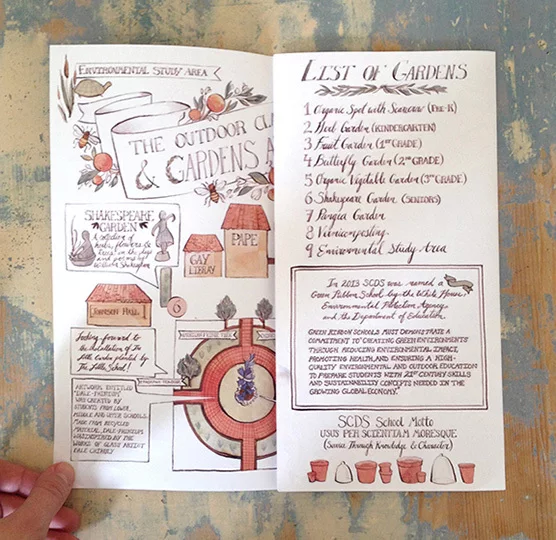 ENVIRONMENTAL STUDY AREA
THE OUTDOOR CL
& GARDENS A
SHAKESPEARE
GARDEN
A collection of
herbs, flowers &
trees in the plays
and poems by
William Shakespeare
PAPE
GAY
LIBRARY
6
JOHNSON HALL
Looking forward to
the installation of the
little garden planted by
The Little School!
ARTWORK ENTITLED
"DALE-PHINIUM"
WAS CREATED BY
STUDENTS FROM LOWER,
MIDDLE AND UPPER SCHOOLS.
MADE FROM RECYCLED
MATERIAL, DALE-PHINIUM
WAS INSPIRED BY THE
WORKS OF GLASS ARTIST
DALE CHIHULY
LIST OF GARDENS
1 Organic Spot with Scarecrow (PRE-K)
2 Herb Garden (KINDERGARTEN)
3 Fruit Garden (1ST GRADE)
4 Butterfly Garden (2ND GRADE)
5 Organic Vegetable Garden (3RD GRADE)
6 Shakespeare Garden (SENIORS)
7 Pangea Garden
8 Vermicomposting
9 Environmental Study Area
In 2013 SCDS was named a
Green Ribbon School by the White House,
Environmental Protection Agency
and the Department of Education.
GREEN RIBBON SCHOOLS MUST DEMONSTRATE A
COMMITMENT TO CREATING GREEN ENVIRONMENTS
THROUGH REDUCING ENVIRONMENTAL IMPACT,
PROMOTING HEALTH AND ENSURING A HIGH-
QUALITY ENVIRONMENTAL AND OUTDOOR EDUCATION
TO PREPARE STUDENTS WITH 21ST CENTURY SKILLS
AND SUSTAINABILITY CONCEPTS NEEDED IN THE
GROWING GLOBAL ECONOMY."
SCDS School Motto
USUS PER SCIENTIAM MORESQUE
(Service Through Knowledge & Character)